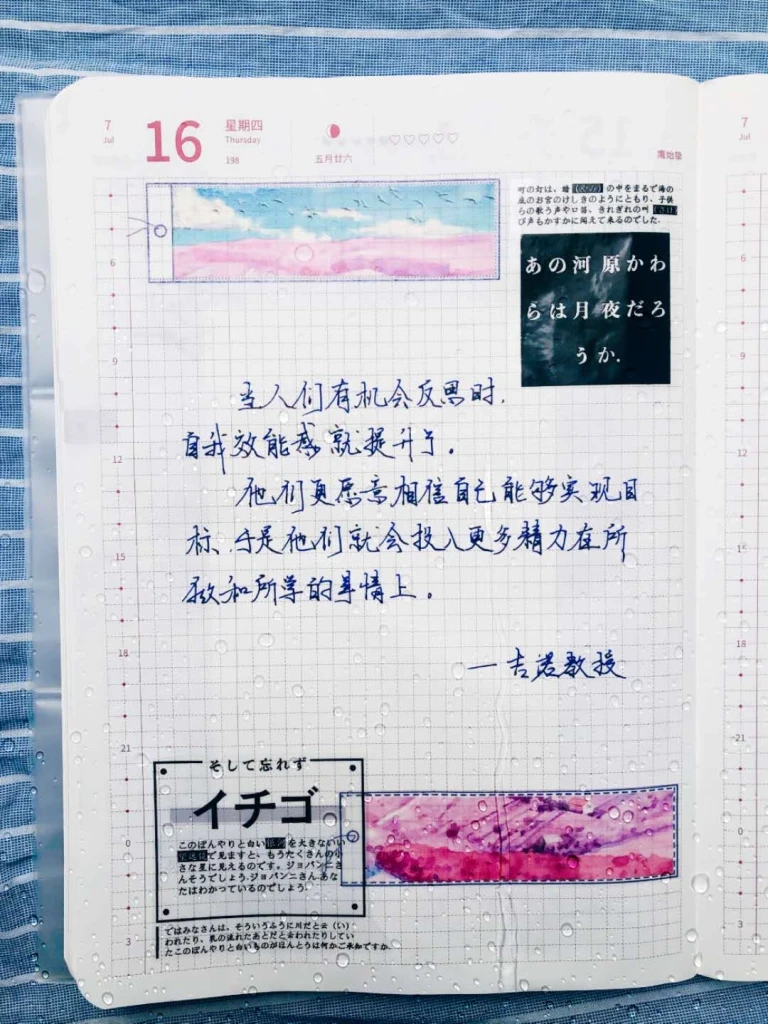 7
Jul
16
星期四
Thursday
198
五月廿六
♡♡♡♡♡
鹰始挚
7
Jul
町の灯は、暗 の中をまるで海の
底のお宮のけしきのようにともり、子供
らの歌う声や口笛、きれぎれの叫
び声もかすかに聞えて来るのでした。
あの河原かわ
らは月夜だろ
うか.
6
9
12
15
18
21
0
3
当人们有机会反思时,
自我效能感就提升了。
他们更愿意相信自己能够实现目
标、于是他们就会投入更多精力在所
做和所学的事情上。
—吉诺教授
そして忘れず
イチゴ
このぼんやりと白い銀河を大きないい
望遠鏡で見ますと、もうたくさんの小
さな星に見えるのです。ジョバンニさ
んそうでしょう。ジョバンニさんあな
たはわかっているのでしょう.
ではみなさんは、そういうふうに川だと云（い）
われたり、乳の流れたあとだと云われたりしてい
たこのぼんやりと白いものがほんとうは何かご承知ですか.
6
9
12
15
18
21
0
3